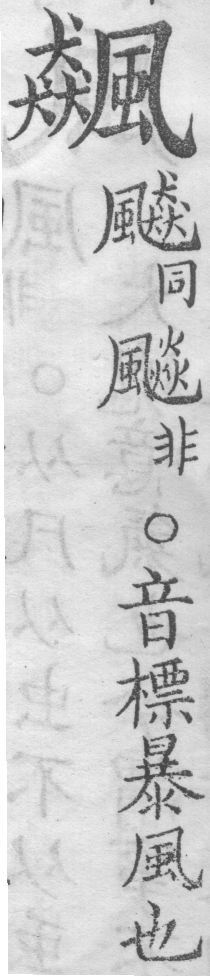 飆飈同飚非○音標暴風也